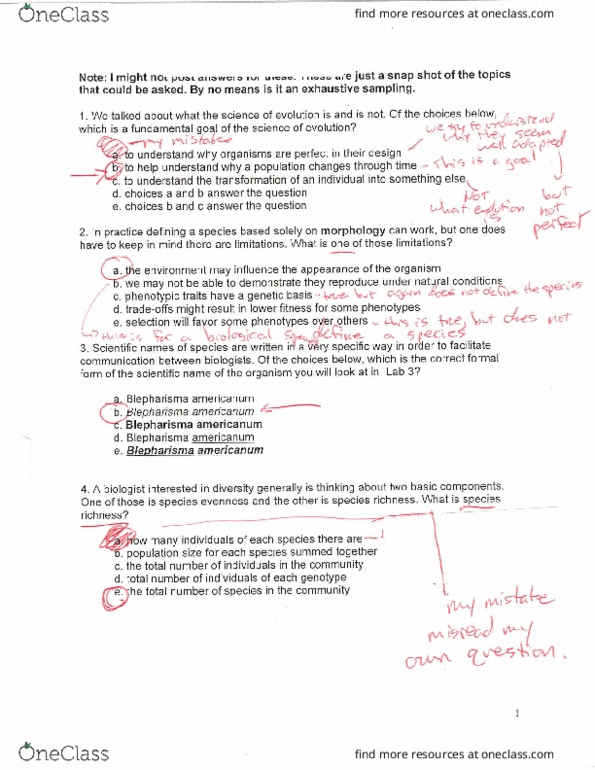 OneClass
find more resources at oneclass.com
Note: I might not post answers for these. These are just a snap shot of the topics
that could be asked. By no means is it an exhaustive sampling.
1. We talked about what the science of evolution is and is not. Of the choices below,
which is a fundamental goal of the science of evolution?
my mistake
we try to understand
why they seem
well adapted
a. to understand why organisms are perfect in their design
b. to help understand why a population changes through time - This is a goal
c. to understand the transformation of an individual into something else
d. choices a and b answer the question
e. choices b and c answer the question
Not
what evolution is
but
not
perfect
2. In practice defining a species based solely on morphology can work, but one does
have to keep in mind there are limitations. What is one of those limitations?
a. the environment may influence the appearance of the organism
b. we may not be able to demonstrate they reproduce under natural conditions
c. phenotypic traits have a genetic basis - true but again does not define the species
d. trade-offs might result in lower fitness for some phenotypes
e. selection will favor some phenotypes over others - this is true, but does not
define a species
this is for a biological
3. Scientific names of species are written in a very specific way in order to facilitate
communication between biologists. Of the choices below, which is the correct formal
form of the scientific name of the organism you will look at in Lab 3?
a. Blepharisma americanum
b. Blepharisma americanum
c. Blepharisma americanum
d. Blepharisma americanum
e. Blepharisma americanum
4. A biologist interested in diversity generally is thinking about two basic components.
One of those is species evenness and the other is species richness. What is species
richness?
a. how many individuals of each species there are
b. population size for each species summed together
c. the total number of individuals in the community
d. total number of individuals of each genotype
e. the total number of species in the community
my mistake
misread my
own question.
1
OneClass
find more resources at oneclass.com